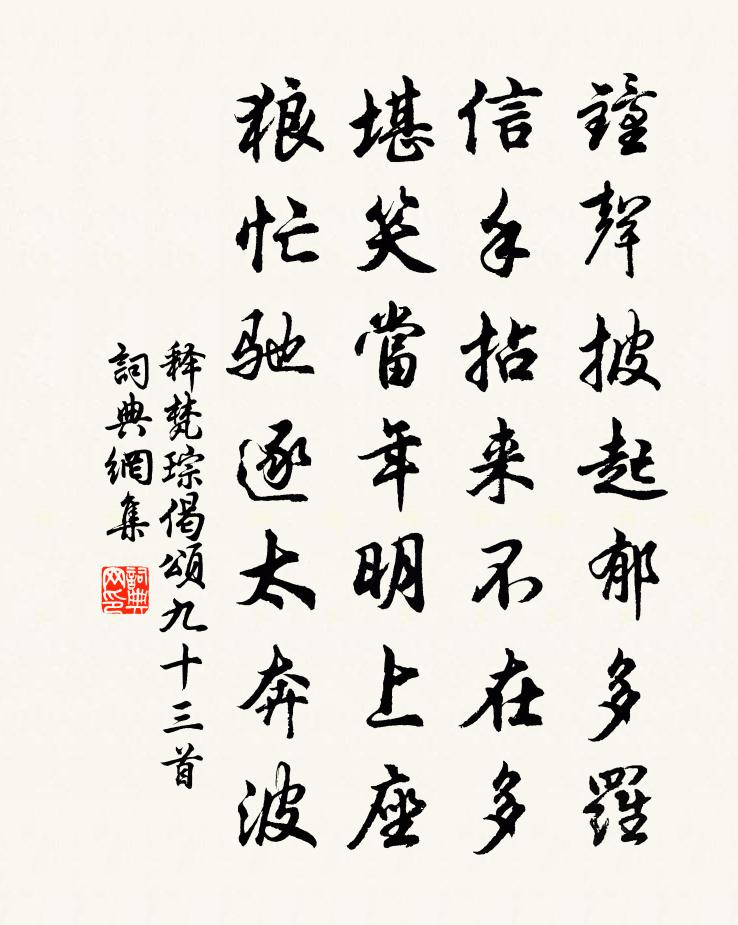 鐘聲披起郁多羅
信手拈来不在多
堪笑當年明上座
狼忙馳逐太奔波
释梵琮偈頌九十三首
詞典網集
詞典网印